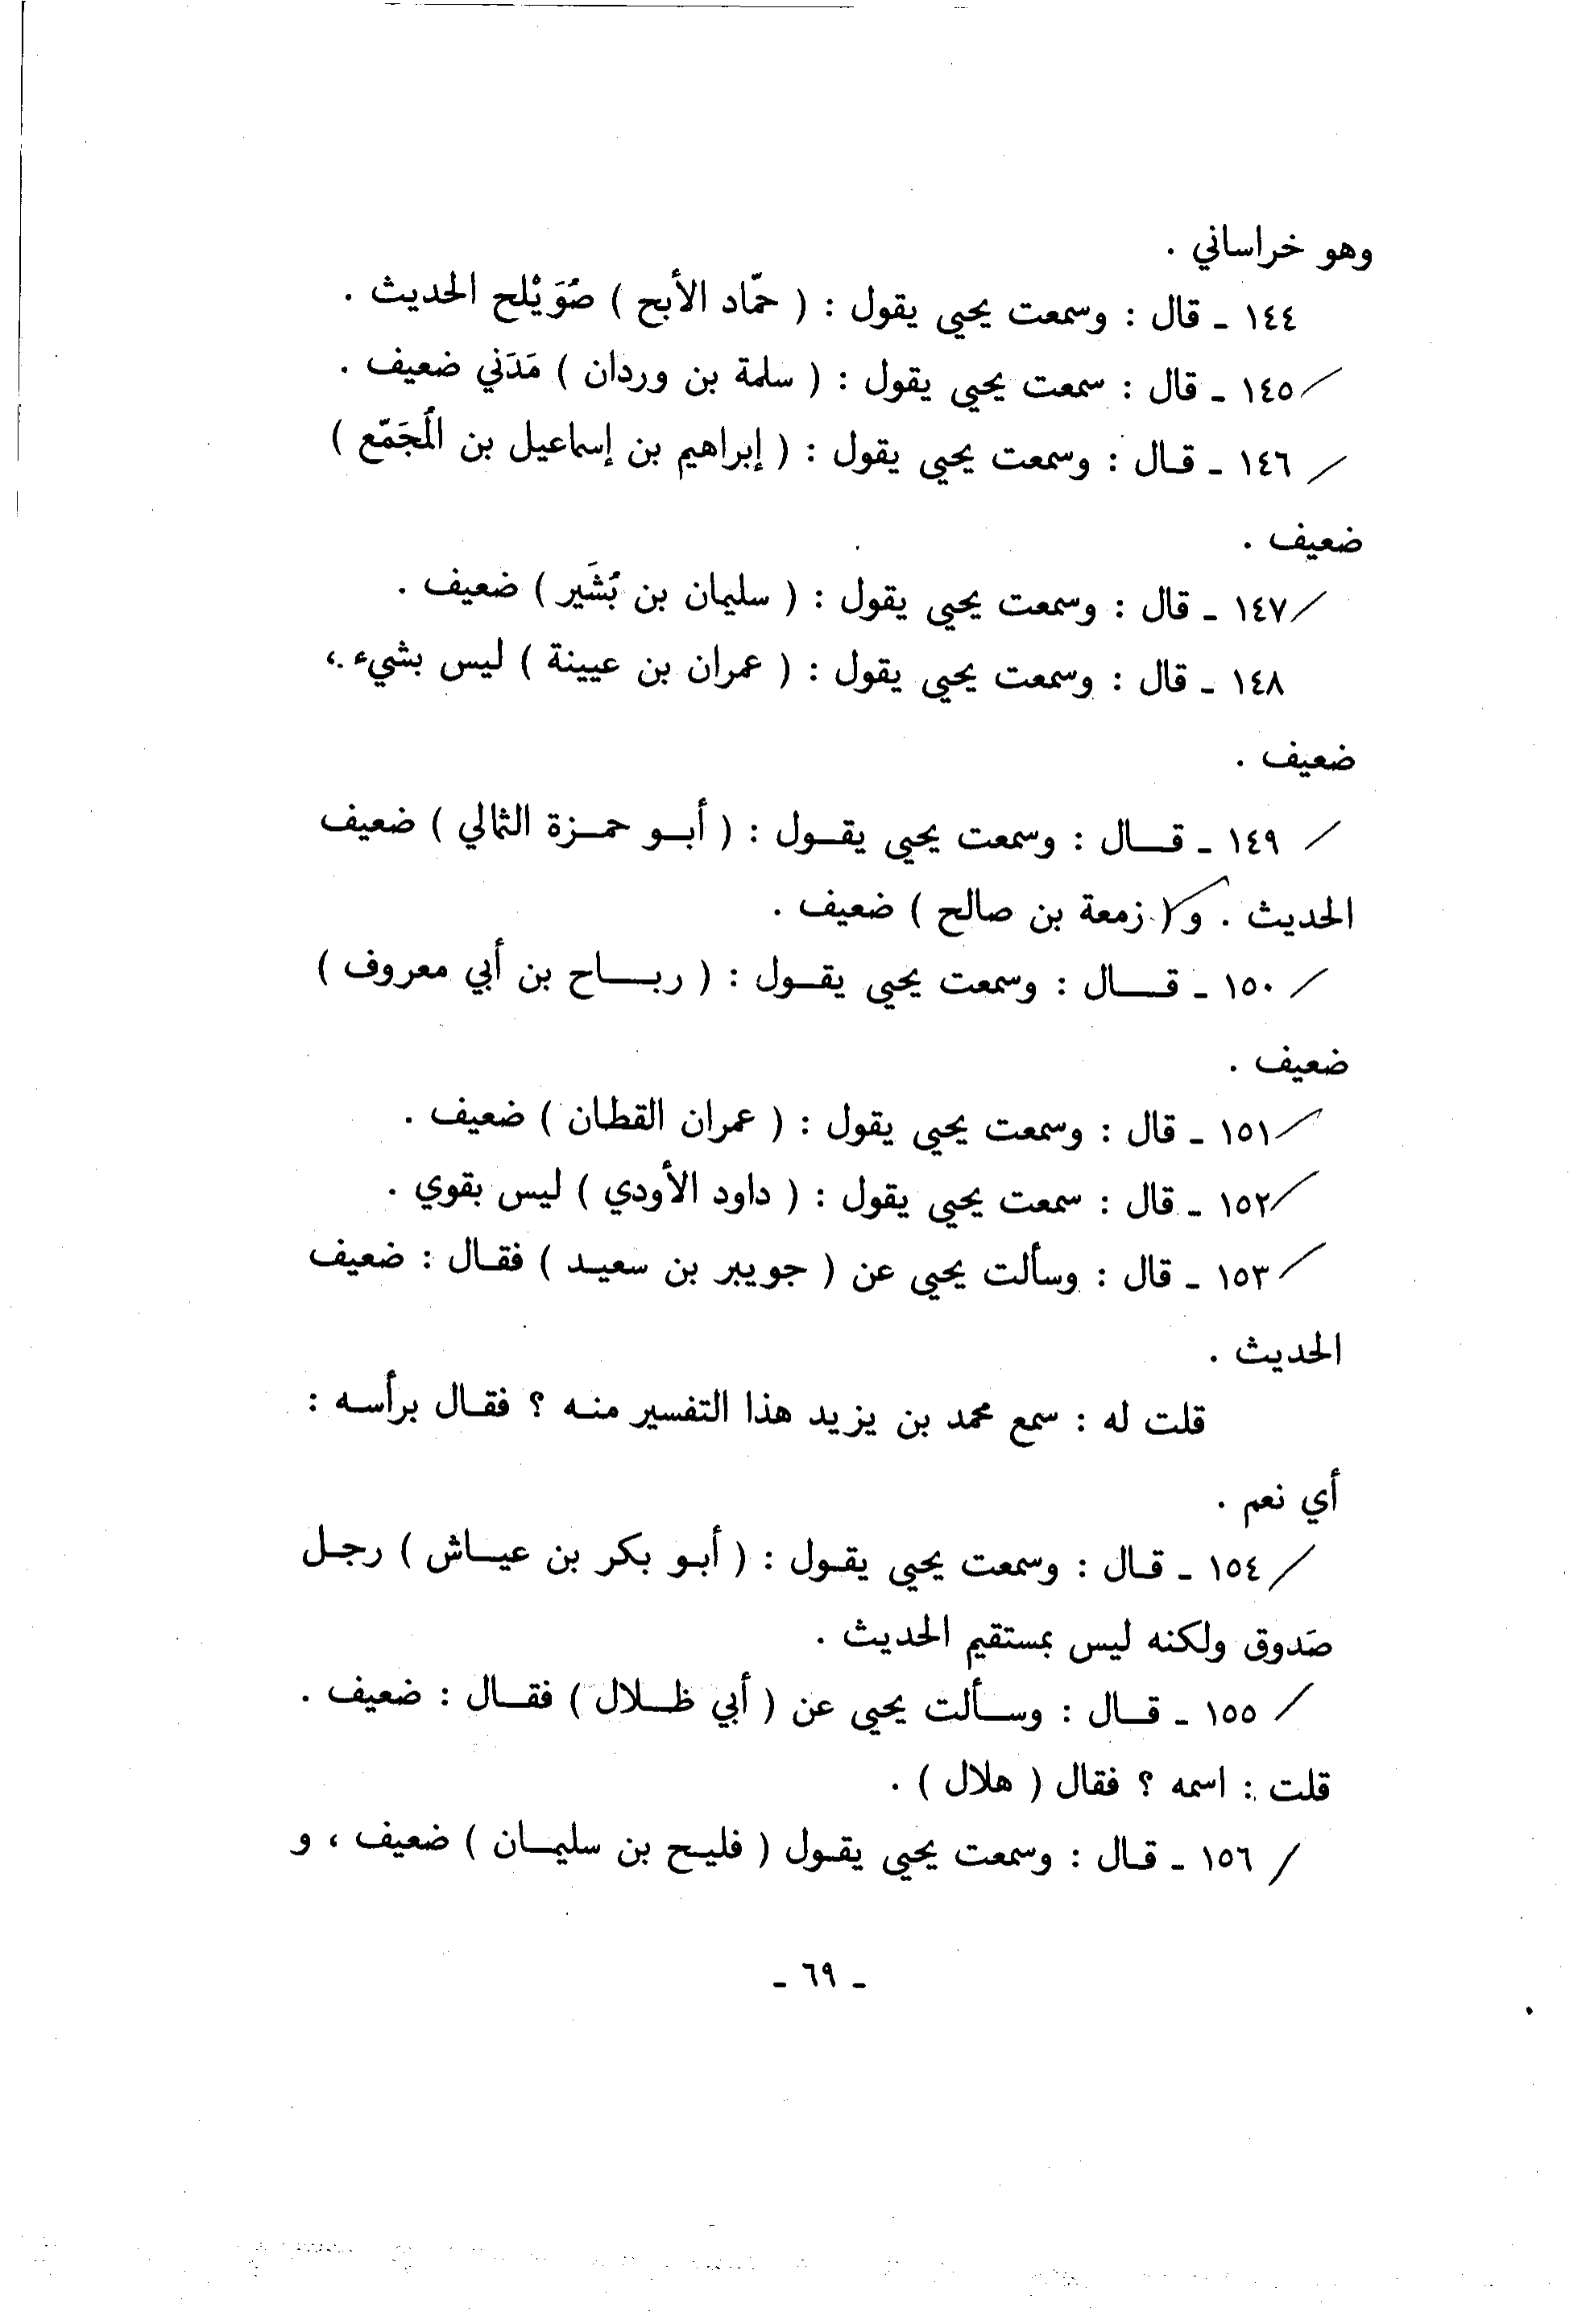 وهو خراساني .
١٤٤ ـ قال : وسمعت يحيى يقول : ( حمّاد الأبح ) صُوَيْلح الحديث .
١٤٥ ـ قال : سمعت يحيى يقول : ( سلمة بن وردان ) مَدَني ضعيف .
١٤٦ ـ قـال : وسمعت يحيى يقول : ( إبراهيم بن إسماعيل بن المُجَمّع )
ضعيف .
١٤٧ ـ قال : وسمعت يحيى يقول : ( سليمان بن بُشَير ) ضعيف .
١٤٨ ـ قال : وسمعت يحيى يقول : ( عمران بن عيينة ) ليس بشيء .،
ضعيف .
١٤٩ ـ قـــال : وسمعت يحيى يقــول : ( أبــو حمــزة الثمالي ) ضعيف
الحديث . و ( زمعة بن صالح ) ضعيف .
١٥٠ ـ قــــال : وسمعت يحيى يقــول : ( ربـــــاح بن أبي معروف )
ضعيف .
١٥١ ـ قال : وسمعت يحيى يقول : ( عمران القطان ) ضعيف .
١٥٢ ـ قال : سمعت يحيى يقول : ( داود الأودي ) ليس بقوي .
١٥٣ ـ قال : وسألت يحيى عن ( جويبر بن سعيـد ) فقـال : ضعيف
الحديث .
قلت له : سمع محمد بن يزيد هذا التفسير منـه ؟ فقـال برأسـه :
أي نعم .
١٥٤ ـ قـال : وسمعت يحيى يقـول : ( أبـو بكر بن عيـاش ) رجـل
صَدوق ولكنه ليس بمستقيم الحديث .
١٥٥ ـ قــال : وســألت يحيى عن ( أبي ظــلال ) فقــال : ضعيف .
قلت : اسمه ؟ فقال ( هلال ) .
١٥٦ ـ قـال : وسمعت يحيى يقـول ( فليـح بن سليمـان ) ضعيف ، و
ـ ٦٩ ـ